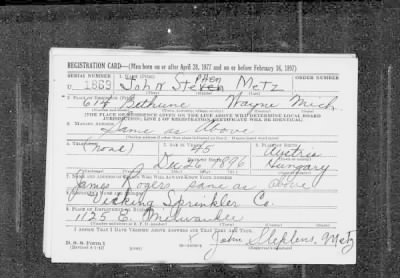 REGISTRATION CARD—(Men born on or after April 28, 1877 and on or before February 16, 1897)
SERIAL NUMBER 1. NAME (Print) ORDER NUMBER
U 1889 John Stephen Metz
(First) (Middle) (Last)
2. PLACE OF RESIDENCE (Print)
614 Bethune Wayne Mich.
(Number and street) (Town, township, village, or city) (County) (State)
[THE PLACE OF RESIDENCE GIVEN ON THE LINE ABOVE WILL DETERMINE LOCAL BOARD JURISDICTION; LINE 2 OF REGISTRATION CERTIFICATE WILL BE IDENTICAL]
3. MAILING ADDRESS
Same as Above
4. TELEPHONE 5. AGE IN YEARS 6. PLACE OF BIRTH
(none) 45 Austria
DATE OF BIRTH
Dec 26 1896 Hungary
7. NAME AND ADDRESS OF PERSON WHO WILL ALWAYS KNOW YOUR ADDRESS
James Rogers same as Above
8. EMPLOYER'S NAME AND ADDRESS
Vicking Sprinkler Co.
9. PLACE OF EMPLOYMENT OR BUSINESS
1125 E. Milwaukee
I AFFIRM THAT I HAVE VERIFIED ABOVE ANSWERS AND THAT THEY ARE TRUE.
D. S. S. Form 1
(Revised 4-1-42)
John Stephens. Metz